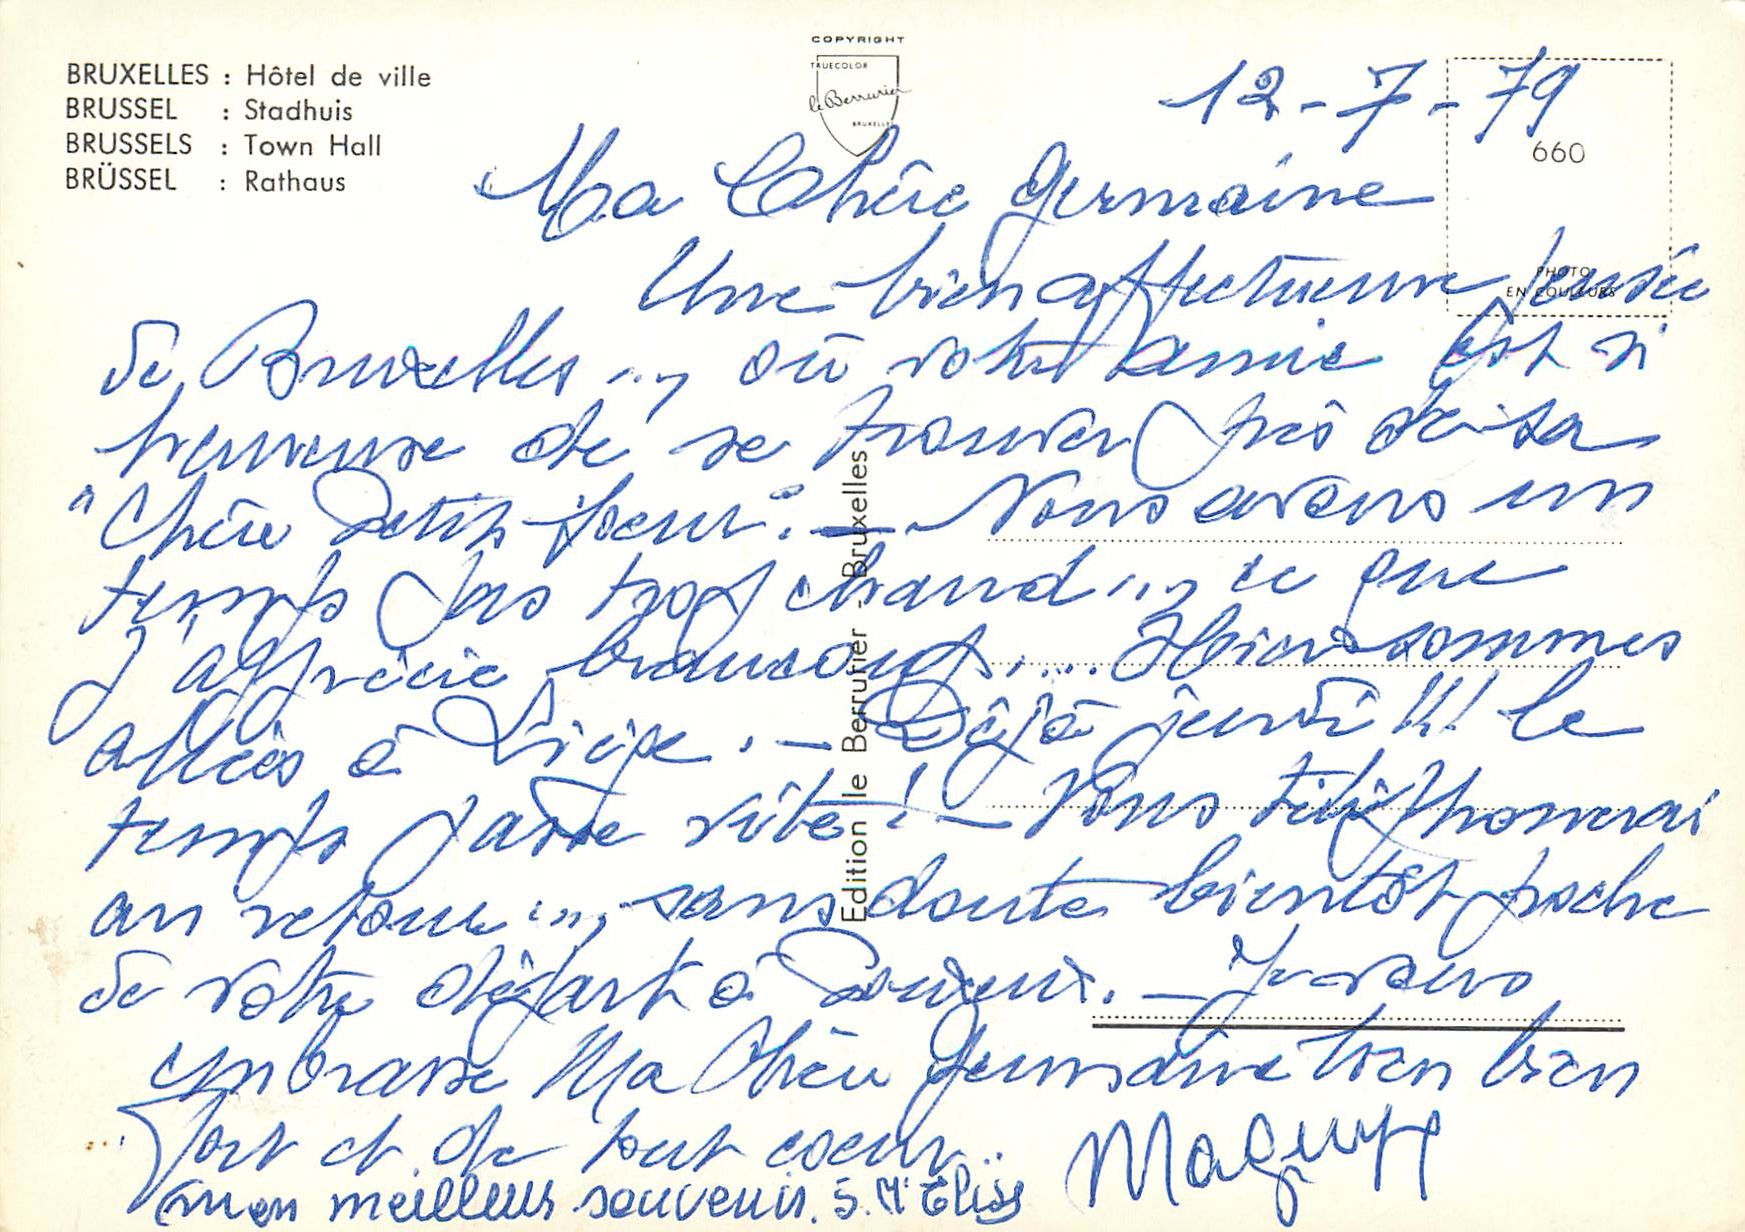 BRUXELLES : Hôtel de ville
BRUSSEL : Stadhuis
BRUSSELS : Town Hall
BRÜSSEL : Rathaus
COPYRIGHT
TRUECOLOR
le Berrurier
BRUXELLES
12-7-79
660
PHOTO
EN COULEURS
Ma Chère Germaine
Une bien affectueuse pensée
de Bruxelles ... où votre amie est si
heureuse de se trouver près de sa
"Chère Petite soeur". — Nous avons un
temps pas trop chaud ... ce que
j'apprécie beaucoup .... Hier sommes
allées à Liège. — Déjà jeudi !!! le
temps passe vite ! — Vous téléphonerai
au retour ... sans doute bientôt proche
de votre départ à . — Je vous
embrasse Ma Chère Germaine bien bien
fort et de tout coeur ..
Maguy
mon meilleur souvenir. S. M. Eliss
Edition le Berrurier - Bruxelles